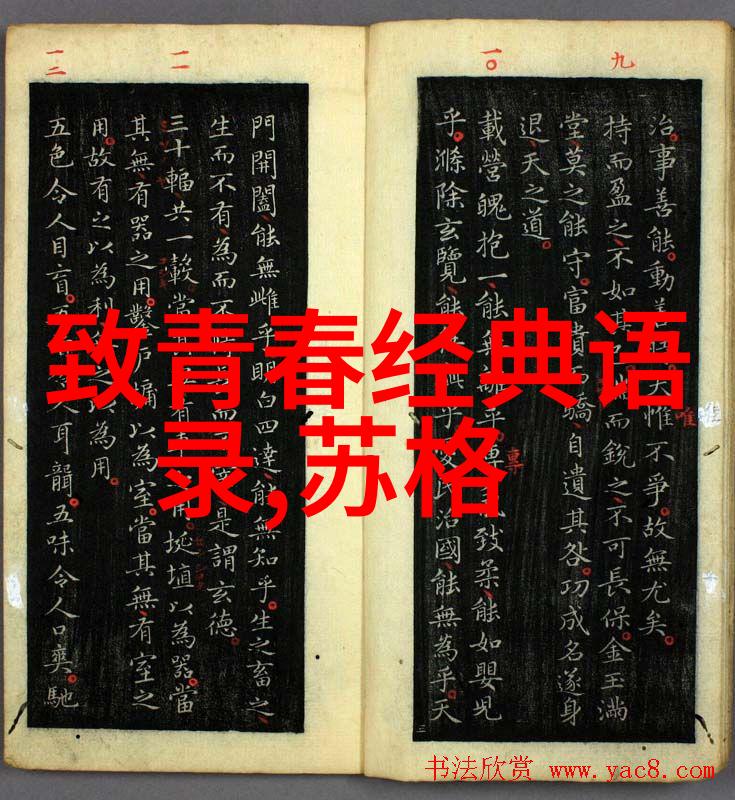 九
治事善能動善夫惟不爭故無尤矣
唯
持而盈之不如其而銳之不可長保金玉滿
堂莫之能守富貴而驕自遺其咎功成名遂身
退天之道
一〇
載營魄抱一能無離乎專致柔能如嬰児
專
乎滌除玄覽能無乎民治國能無為乎天
一一
門開闔能無雌乎明白四達能無知乎生之畜之
生而不有為而不恃而是謂玄德
三十輻共一轂當有用埏埴以為器當
其無有器之用鑿戶牖以為室當其無有室之
用故有之以為利之以為用
一二
五色令人目盲五人耳聾五味令人口爽馳
致青春经典语
录,苏格
书法欣赏 www.yac8.com